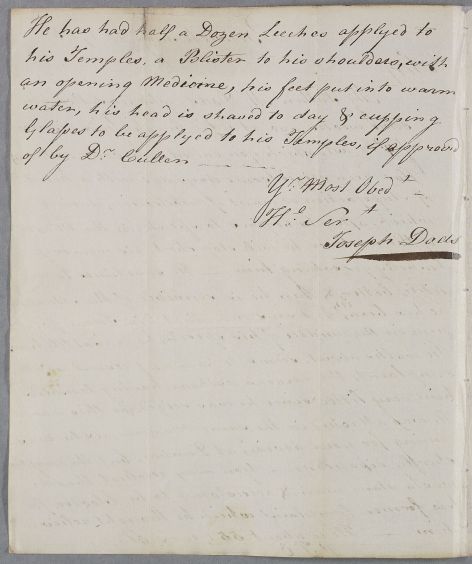 He has had half a Dozen Leeches applyed to
his Temples, a Blister to his shoulders, with
an opening Medicine, his feet put into warm
water, his head is shaved to day & cupping
Glasses to be applyed to his Temples, if approved
of by Dr. Cullen
Yr. Most Obedt
He. Sert
Joseph Dods